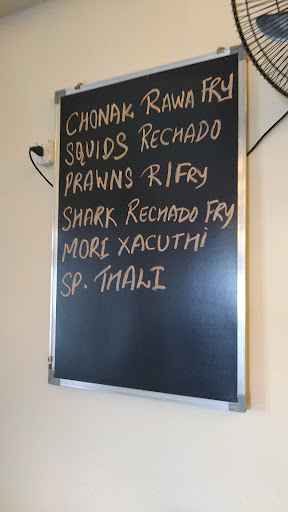 CHONAK RAWA FRY
SQUIDS RECHADO
PRAWNS R/FRY
SHARK RECHADO FRY
MORI XACUTHI
SP. THALI